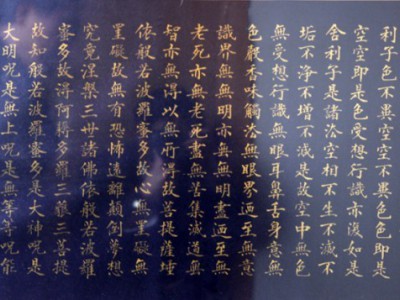 利子色不異空空不異色色即是
空空即是色受想行識亦復如是
舍利子是諸法空相不生不滅不
垢不淨不增不減是故空中無色
無受想行識無眼耳鼻舌身意無
色聲香味觸法無眼界迺至無意
識界無無明亦無無明盡迺至無
老死亦無老死盡無苦集滅道無
智亦無得以無所得故菩提薩埵
依般若波羅蜜多故心無罣礙無
罣礙故無有恐怖遠離顛倒夢想
究竟涅槃三世諸佛依般若波羅
蜜多故得阿耨多羅三藐三菩提
故知般若波羅蜜多是大神呪是
大明呪是無上呪是無等等呪能